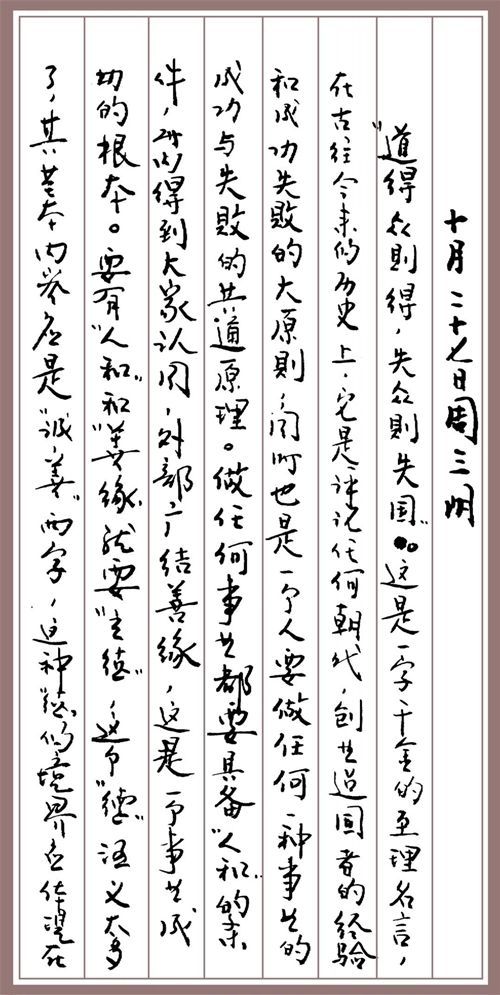 十月二十七日周三 明
"道得众則得，失众則失国"。这是一字千金的至理名言，
在古往今来的历史上，它是评论任何朝代，创业造国者的经验
和成功失败的大原則，同时也是一个人要做任何一种事业的
成功与失败的共通原理。做任何事业都要具备"人和"的条
件，内得到大家认同，外部广结善缘，这是一个事业成
功的根本。要有"人和"和"善缘"就要"立德"，这个"德"涵义太多
了，其基本内容应是"诚、善"两字，这种"德"的境界应体現在